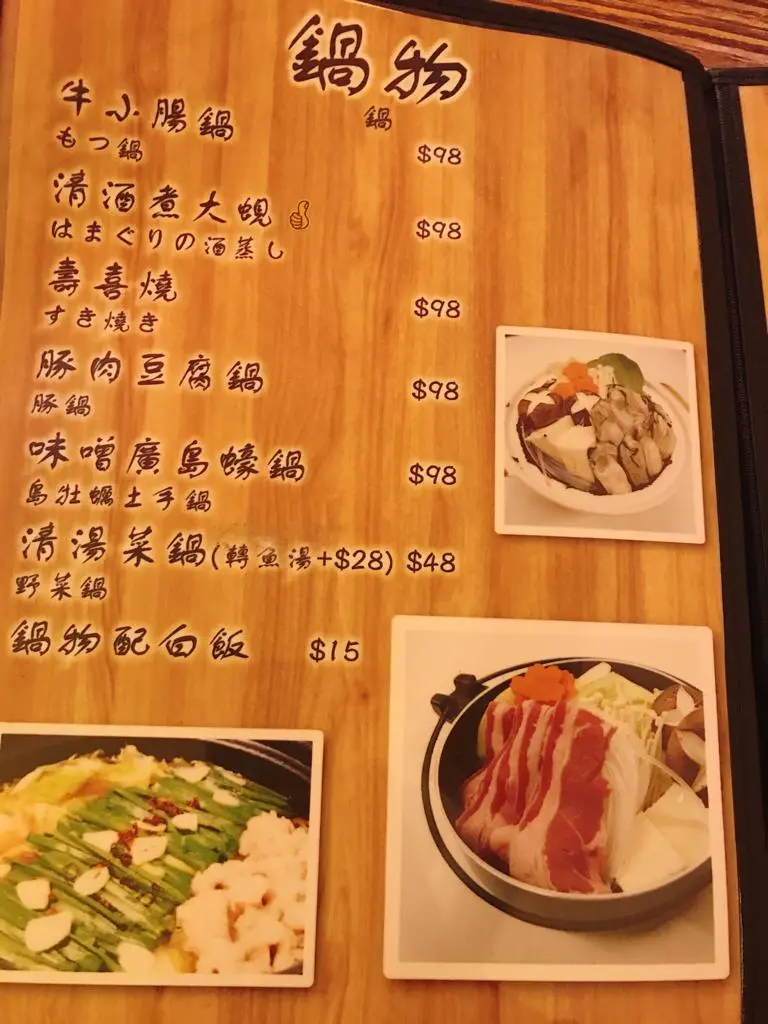 鍋物
鍋
牛小腸鍋
もつ鍋
$98
清酒煮大蜆
はまぐりの酒蒸し
$98
壽喜燒
すき焼き
$98
豚肉豆腐鍋
豚鍋
$98
味噌廣島蠔鍋
島牡蠣土手鍋
$98
清湯菜鍋(轉魚湯+$28) $48
野菜鍋
鍋物配白飯 $15